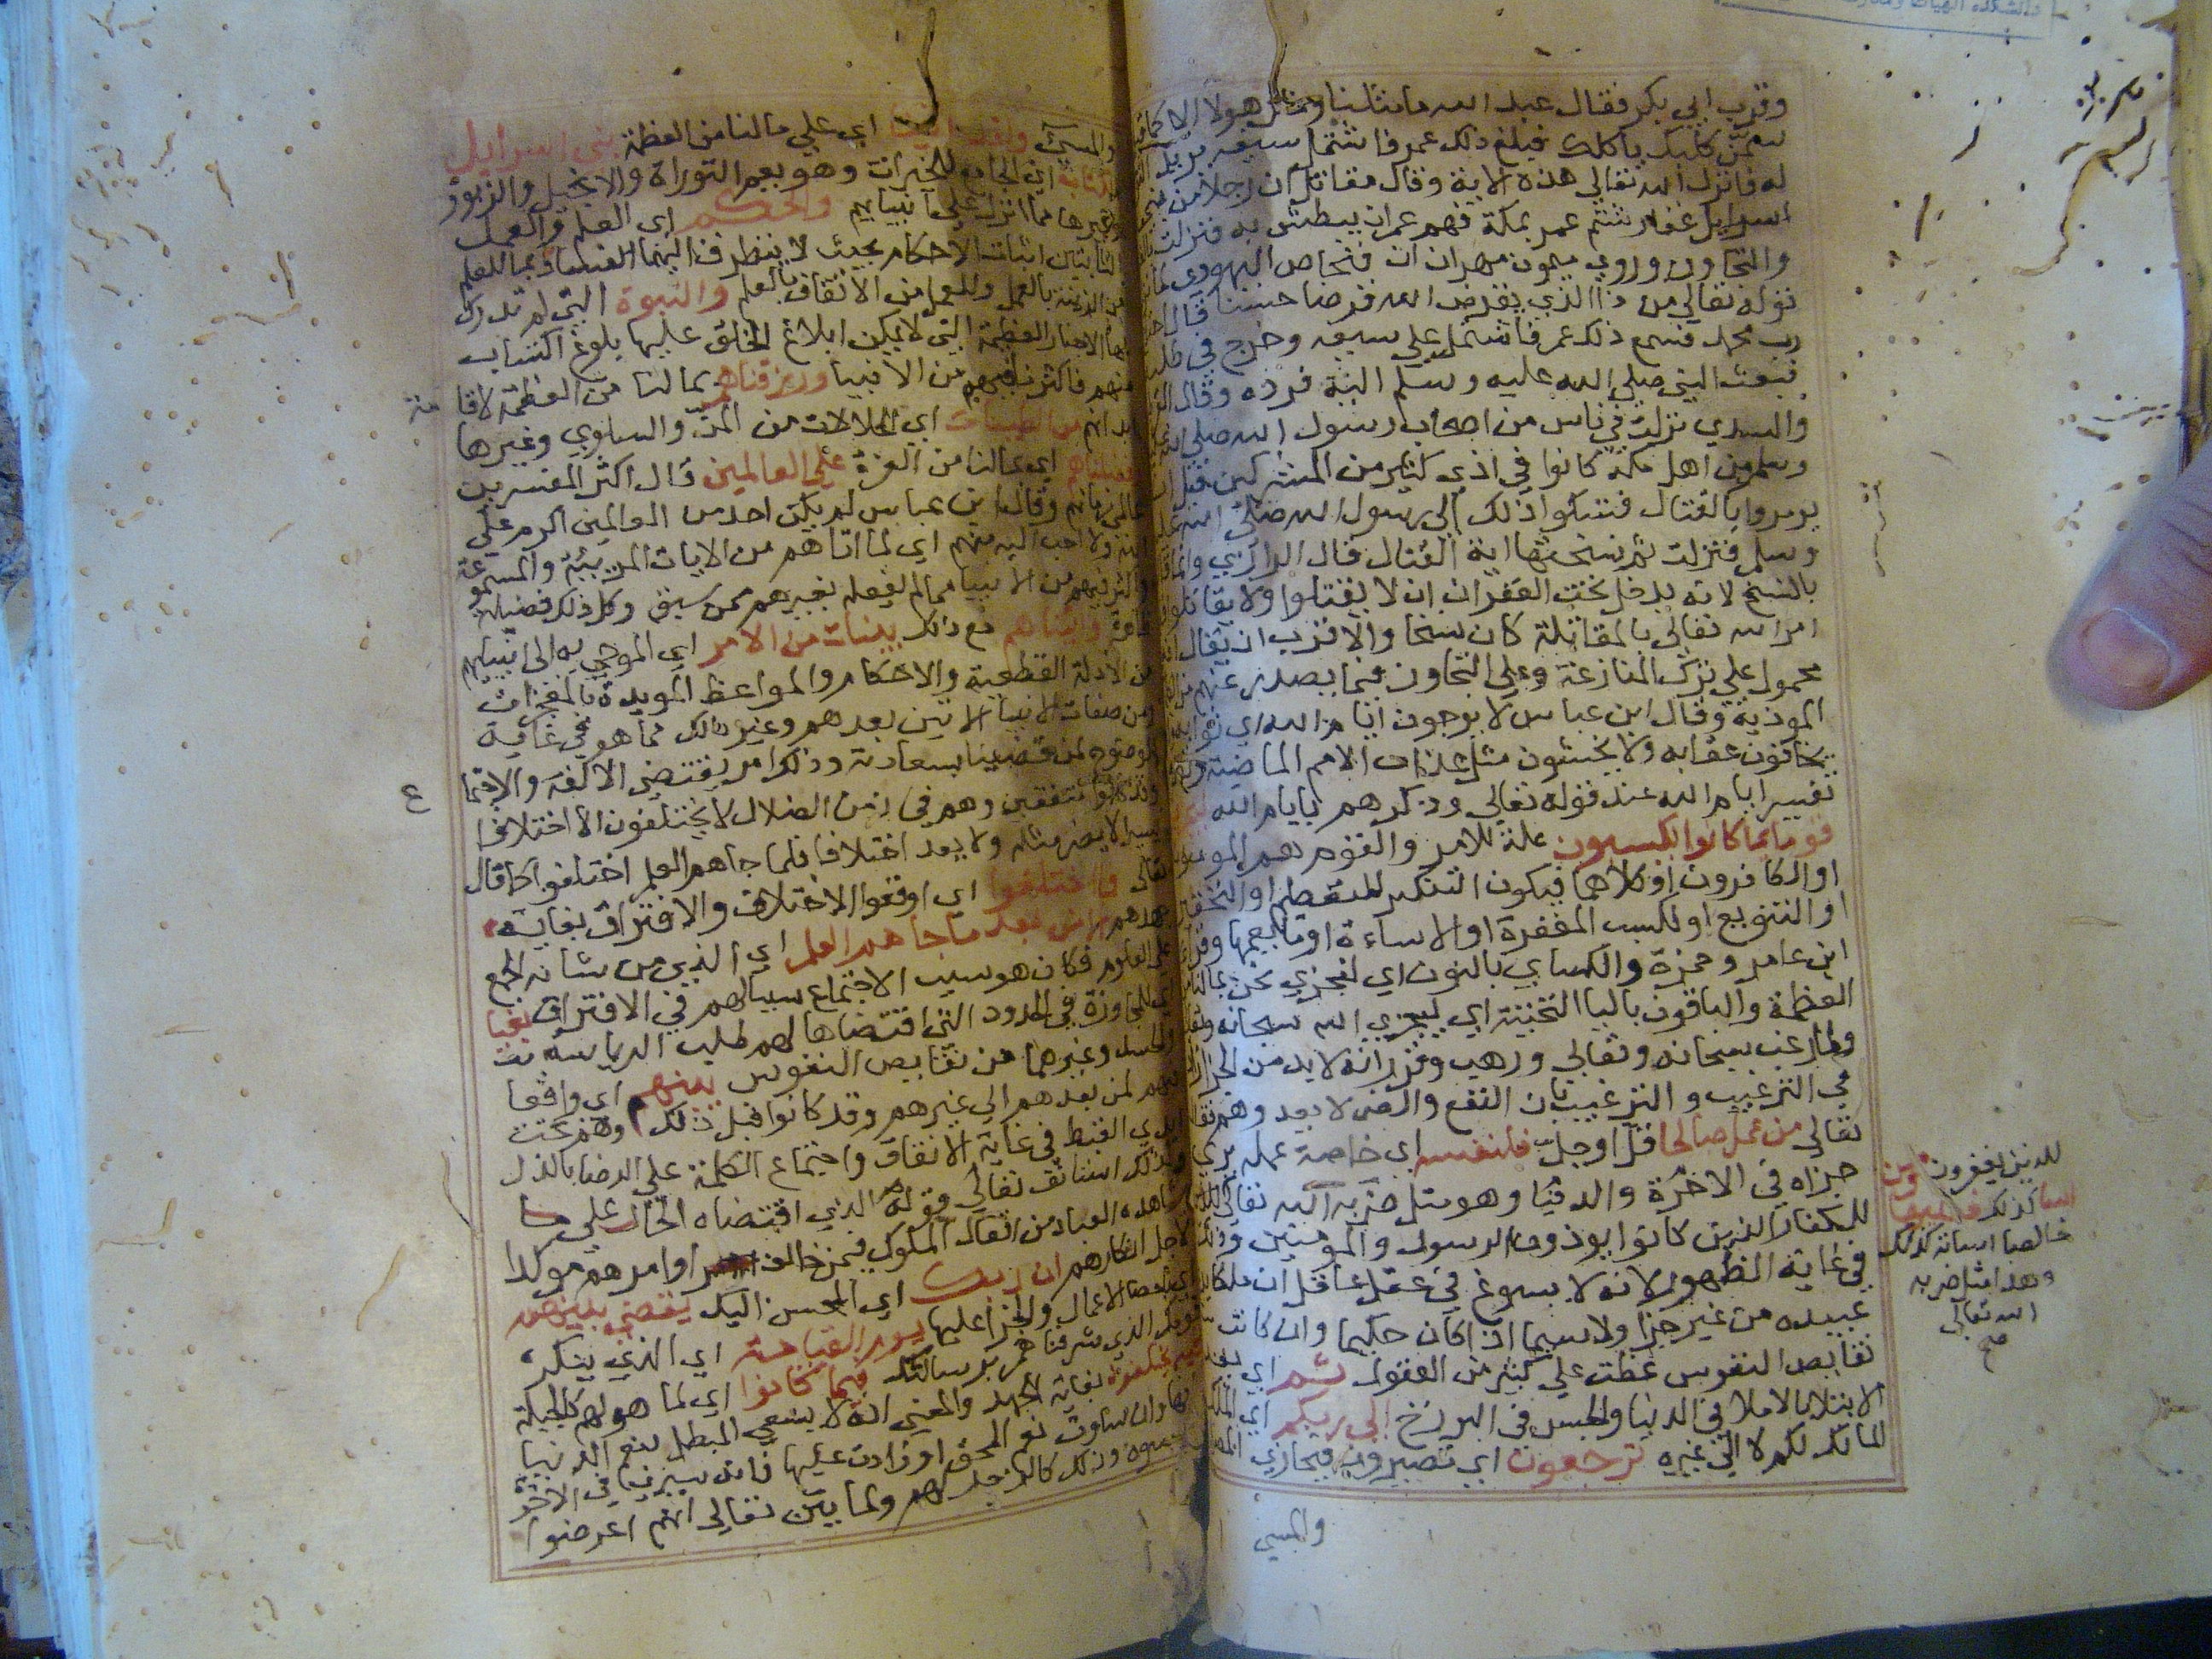 وقرب ابي بكر فقال عبد الله ما مثلنا ومثل هولا الا كما قيل
سمن كلبك ياكلك فبلغ ذلك عمر فاشتمل سيفه يريد
له فانزل الله تعالى هذه الاية وقال مقاتل ان رجلا من بني
غفار شتم عمر بمكة فهم عمر ان يبطش به فنزلت
والتجاوز وروي ميمون بن مهران ان فنحاص اليهودي لما
قوله تعالى من ذا الذي يقرض الله قرضا حسنا قال
رب محمد فسمع ذلك عمر فاشتمل علي سيفه وخرج في طلبه
فبعث النبي صلى الله عليه وسلم اليه فرده وقال
والسدي نزلت في ناس من اصحاب رسول الله صلى الله
وسلم من اهل مكة كانوا في اذي كثير من المشركين قبل ان
يومروا بالقتال فشكوا ذلك الى رسول الله صلى الله
وسلم فنزلت ثم نسختها اية القتال قال الرازي وانما
بالنسخ لانه يدخل تحت الغفران ان لا يقتلوا ولا يقاتلوا
امر الله تعالى بالمقاتلة كان نسخا والاقرب ان يقال
محمول علي ترك المنازعة وعلي التجاوز فيما يصدر عنهم
الموذية وقال ابن عباس لا يرجون ايام الله اي ثوابه
يخافون عقابه ولا يخشون مثل عذاب الامم الماضية
تفسير ايام الله عند قوله تعالي وذكرهم بايام الله
قوما بما كانوا يكسبون علة للامر والقوم هم المومنون
او الكافرون او كلاهما فيكون التنكير للتعظيم او التحقير
او التنويع او لكسب المغفرة او الاساءة او ما يعمها وقرا
ابن عامر وحمزة والكساي بالنون اي لنجزي نحن بما لنا من
العظمة والباقون باليا التحتية اي ليجزي الله سبحانه
ولما رغب سبحانه وتعالي ورهب وقرر انه لا بد من الجزا
في الترغيب و الترهيب بان النفع والضر لا يعدوهم
تعالي من عمل صالحا قل او جل فلنفسه اي خاصة عمله يري
جزاه في الاخرة والدنيا وهو مثل ضربه الله تعالي
للكفار الذين كانوا يوذون الرسول والمومنين
في غاية الظهور لانه لا يسوغ في عقل عاقل ان ملكا
عبيده من غير جزا ولا سيما اذا كان حكيما وان كانت
نقايص النفوس غطت علي كثير من العقول ثم اي بعد
الابتلا بالاملا في الدنيا والحبس في البرزخ الى ربكم اي
المالك لكم لا الي غيره ترجعون اي تصيرون فيجازي
والمسي
للذين يغفرون ومن
اسا كذلك فعليها
خالصا اساته كذلك
وهذا مثل ضربه
الله تعالى
صح
والمسي ولقد اتينا اي علي ما لنا من العظمة بني اسرايل
الكتاب اي الجامع للخيرات وهو يعم التوراة والانجيل والزبور
وغيرها مما انزل علي انبيايهم والحكم اي العلم والعمل
الثابتين اثبات الاحكام بحيث لا يتطرق اليهما الفساد بما للعلم
من الزينة بالعمل وللعمل من الاتقان بالعلم والنبوة التي لم تدرك
بها الاخبار العظيمة التي لا يمكن ابلاغ الخلق عليها بلوغ اكتساب
منهم فاكثرنا فيهم من الانبيا ورزقناهم بما لنا من العظمة لاقامة
ابدانهم من الطيبات اي الحلالات من المن والسلوي وغيرها
وفضلناهم اي بما لنا من العزة علي العالمين قال اكثر المفسرين
عالمي زمانهم وقال ابن عباس لم يكن احد من العالمين اكرم علي
الله ولا احب اليه منهم اي لما اتاهم من الايات المرييه والمسموعة
واكثر فيهم من الانبيا مما لم يفعله بغيرهم ممن سبق وكل ذلك فضيلة
ظاهرة واتيناهم مع ذلك بينات من الامر اي الموحي به الى انبيايهم
من الادلة القطعية والاحكام والمواعظ المويدة بالمعجزات
ومن صفات الانبيا الاتين بعدهم وغير ذلك مما هو في غاية
الوضوح لمن قضينا بسعادته وذلك امر يقتضي الالفة والاجتما
ع
وقد كانوا متفقين وهم في زمن الضلال لا يختلفون الا اختلافا
يسيرا لا يضر مثله ولا يعد اختلافا فلما جاهم العلم اختلفوا كما قال
تعالى فما اختلفوا اي اوقعوا الاختلاف والافتراق بغاية
جهدهم الا من بعد ما جاهم العلم اي الذي من شانه الجمع
علي المعلوم فكان هو سبب الاجتماع سببا لهم في الافتراق بغيا
اي للمجاوزة في الحدود التي اقتضاها لهم طلب الرياسة
والحسد وغيرهما من نقايص النفوس بينهم اي واقعا
فيهم لمن بعدهم الي غيرهم وقد كانوا قبل ذلك وهم تحت
ايدي القبط في غاية الاتفاق واجتماع الكلمة علي الرضا بالذل
ولذلك استانف تعالي قوله الذي اقتضاه الحال علي ما
يشاهده العباد من افعال الملوك فيمن خالف اوامرهم موكدا
لاجل انكارهم ان ربك اي المحسن اليك يقضي بينهم
اي باحصا الاعمال والجزا عليها يوم القيامة اي الذي ينكره
قومك الذي شرفناهم برسالتك فيما كانوا اي لما هو لهم كالجبلة
فيه يختلفون بغاية الجهد والمعني انه لا ينبغي المبطل بنعم الدنيا
فانها وان ساوت نعم المحق او زادت عليها فانه سيري في الاخرة
ما يسوه وذلك كالزجر لهم ولما بين تعالى انهم اعرضوا